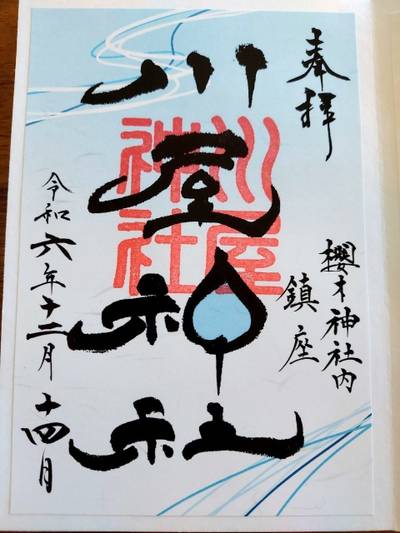 奉拝
櫻木神社内
鎮座
川屋神社
川屋
神社
令和六年十二月十四日